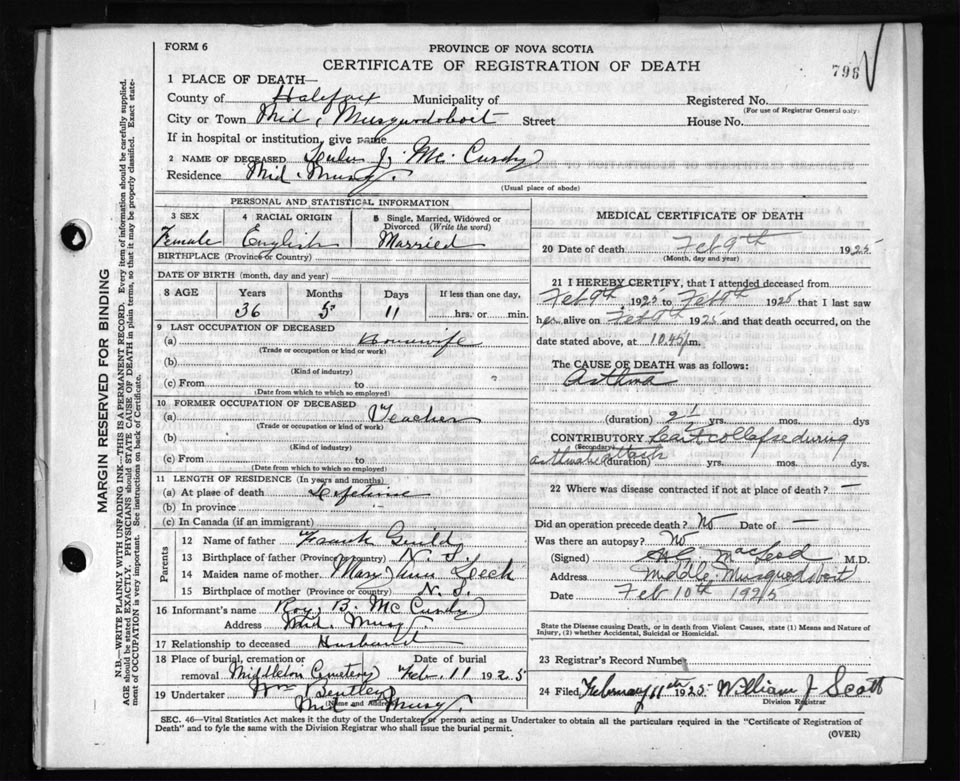 FORM 6
PROVINCE OF NOVA SCOTIA
CERTIFICATE OF REGISTRATION OF DEATH
798
1 PLACE OF DEATH—
County of Halifax Municipality of
Registered No.
(For use of Registrar General only)
City or Town Mid. Musquodoboit Street House No.
If in hospital or institution, give name
2 NAME OF DECEASED Lulu J. Mc. Curdy
Residence Mid. Musq.
(Usual place of abode)
PERSONAL AND STATISTICAL INFORMATION
3 SEX
Female
4 RACIAL ORIGIN
English
5 Single, Married, Widowed or Divorced (Write the word)
Married
BIRTHPLACE (Province or Country)
DATE OF BIRTH (month, day and year)
8 AGE Years Months Days If less than one day,
36 5 11 hrs. or min.
9 LAST OCCUPATION OF DECEASED
(a) Housewife
(Trade or occupation or kind or work)
(b)
(Kind of industry)
(c) From to
(Date from which to which so employed)
10 FORMER OCCUPATION OF DECEASED
(a) Teacher
(Trade or occupation or kind of work)
(b)
(Kind of industry)
(c) From to
(Date from which to which so employed)
11 LENGTH OF RESIDENCE (In years and months)
(a) At place of death Lifetime
(b) In province
(c) In Canada (if an immigrant)
Parents
12 Name of father Frank Guild
13 Birthplace of father (Province or country) N. S.
14 Maiden name of mother Mary Ann Leck
15 Birthplace of mother (Province or country) N. S.
16 Informant's name Roy B. Mc Curdy
Address Mid. Musq
17 Relationship to deceased Husband
18 Place of burial, cremation or removal Middleton Cemetery Date of burial Feb. 11 1925
19 Undertaker Wm Bentley
(Name and Address)
Mid Musq.
MEDICAL CERTIFICATE OF DEATH
20 Date of death Feb 9th 1925
(Month, day and year)
21 I HEREBY CERTIFY, that I attended deceased from
Feb 9th 1925 to Feb 9th 1925 that I last saw
her alive on Feb 9th 1925 and that death occurred, on the
date stated above, at 10.45 p.m.
The CAUSE OF DEATH was as follows:
Asthma
(duration) 2½ yrs. mos. dys.
CONTRIBUTORY Heart collapse during
(Secondary)
asthmatic attack (duration) yrs. mos. dys.
22 Where was disease contracted if not at place of death? —
Did an operation precede death? No Date of —
Was there an autopsy? No
(Signed) H.G. MacLeod M.D.
Address Middle Musquodoboit
Date Feb 10th 1925
State the Disease causing Death, or in death from Violent Causes, state (1) Means and Nature of
Injury, (2) whether Accidental, Suicidal or Homicidal.
23 Registrar's Record Number
24 Filed, February 11th 1925 William J Scott
Division Registrar
SEC. 46—Vital Statistics Act makes it the duty of the Undertaker or person acting as Undertaker to obtain all the particulars required in the "Certificate of Registration of
Death" and to fyle the same with the Division Registrar who shall issue the burial permit.
(OVER)
MARGIN RESERVED FOR BINDING
N.B.—WRITE PLAINLY WITH UNFADING INK—THIS IS A PERMANENT RECORD. Every item of information should be carefully supplied.
AGE should be stated EXACTLY. PHYSICIANS should STATE CAUSE OF DEATH in plain terms, so that it may be properly classified. Exact state-
ment of OCCUPATION is very important. See instructions on back of Certificate.